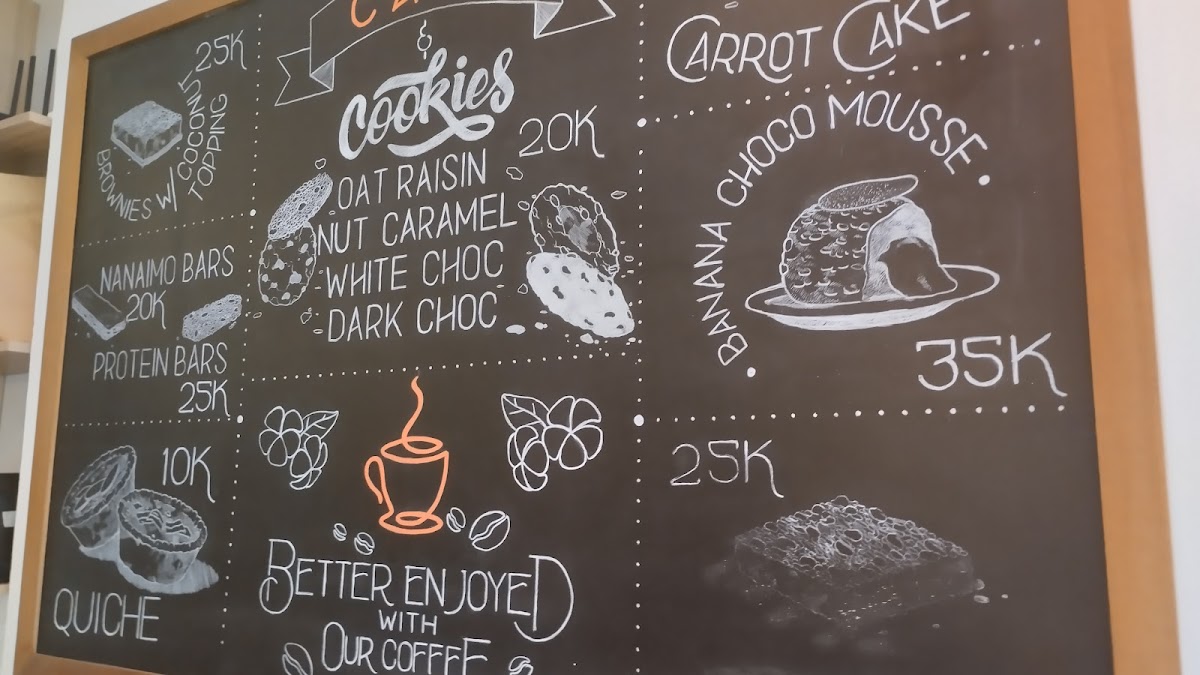 25K
BROWNIES W/
COCONUT
TOPPING
NANAIMO BARS
20K
PROTEIN BARS
25K
10K
QUICHE
&
Cookies
20K
OAT RAISIN
NUT CARAMEL
WHITE CHOC
DARK CHOC
BETTER ENJOYED
WITH
OUR COFFEE
CARROT CAKE
BANANA CHOCO MOUSSE
35K
25K